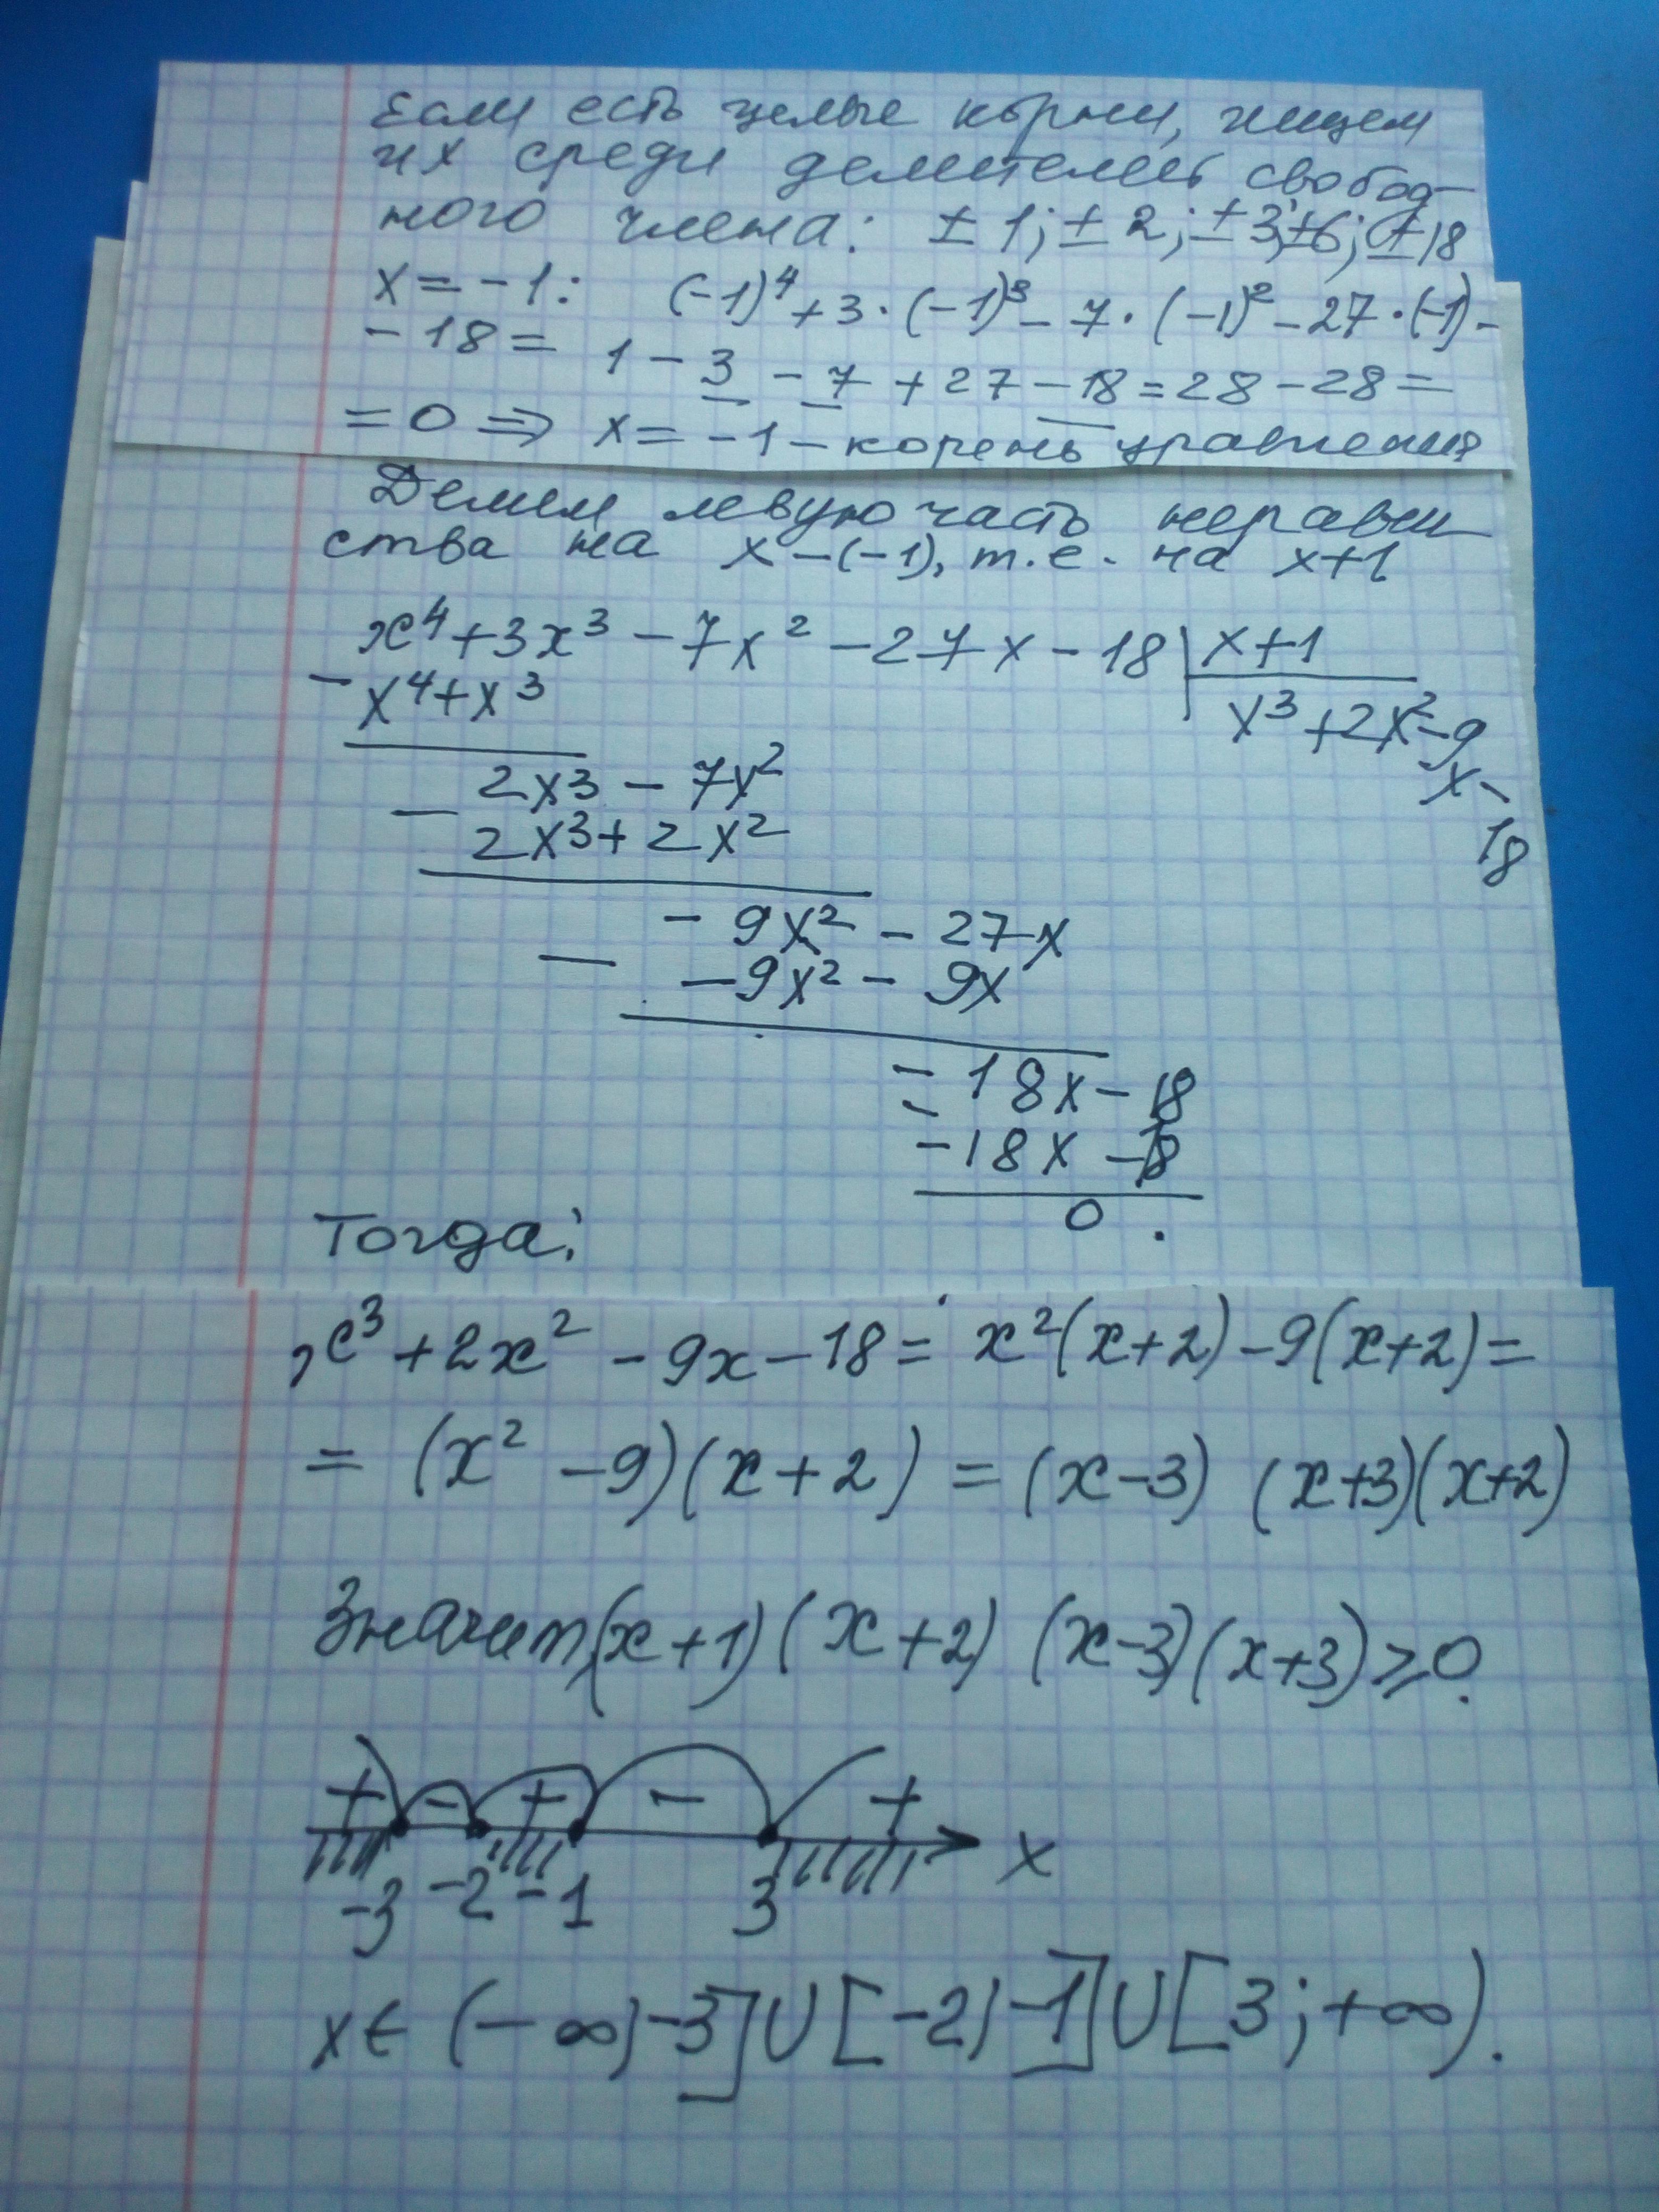 Если есть целые корни, ищем
их среди делителей свобод-
ного члена: ± 1; ± 2; ± 3; ±6; ± 18
x = -1: (-1)⁴ + 3·(-1)³ - 7·(-1)² - 27·(-1) -
- 18 = 1 - 3 - 7 + 27 - 18 = 28 - 28 =
= 0 ⇒ x = -1 - корень уравнения
Делим левую часть неравен
ства на x - (-1), т.е. на x+1
x⁴ + 3x³ - 7x² - 27x - 18 | x+1
- x⁴ + x³
x³ + 2x² - 9
x -
18
2x³ - 7x²
- 2x³ + 2x²
- 9x² - 27x
- - 9x² - 9x
- 18x - 18
- - 18x - 18
0
Тогда:
x³ + 2x² - 9x - 18 = x²(x+2) - 9(x+2) =
= (x² - 9)(x + 2) = (x - 3) (x+3)(x+2)
Значит, (x+1)(x+2) (x-3)(x+3) ⩾ 0
+ - + - +
x
-3 -2 -1 3
x ∈ (-∞; -3] ∪ [-2; -1] ∪ [3; +∞).